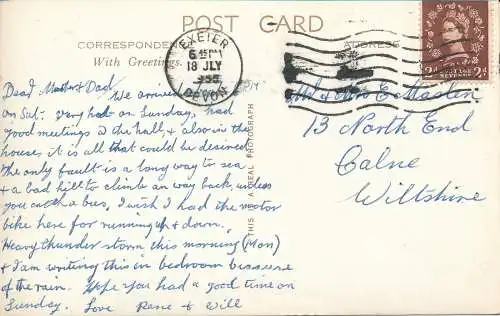 POST CARD
CORRESPONDENCE
ADDRESS
With Greetings.
EXETER
6 15 PM
18 JLY
1955
DEVON
2D
POSTAGE
REVENUE
2D
THIS IS A REAL PHOTOGRAPH
Dear Mother & Dad
We arrived
on Sat: very hot on Sunday, had
good meetings in the hall, & also in the
house, it is all that could be desired
the only fault is a long way to sea
& a bad hill to climb on way back, unless
you catch a bus, I wish I had the motor
bike here for running up & down.
Heavy thunder storm this morning (Mon)
& I am writing this in bedroom because
of the rain. Hope you had a good time on
Sunday. Love Rene & Will
Mr & Mrs E. Maslen
13 North End
Calne
Wiltshire